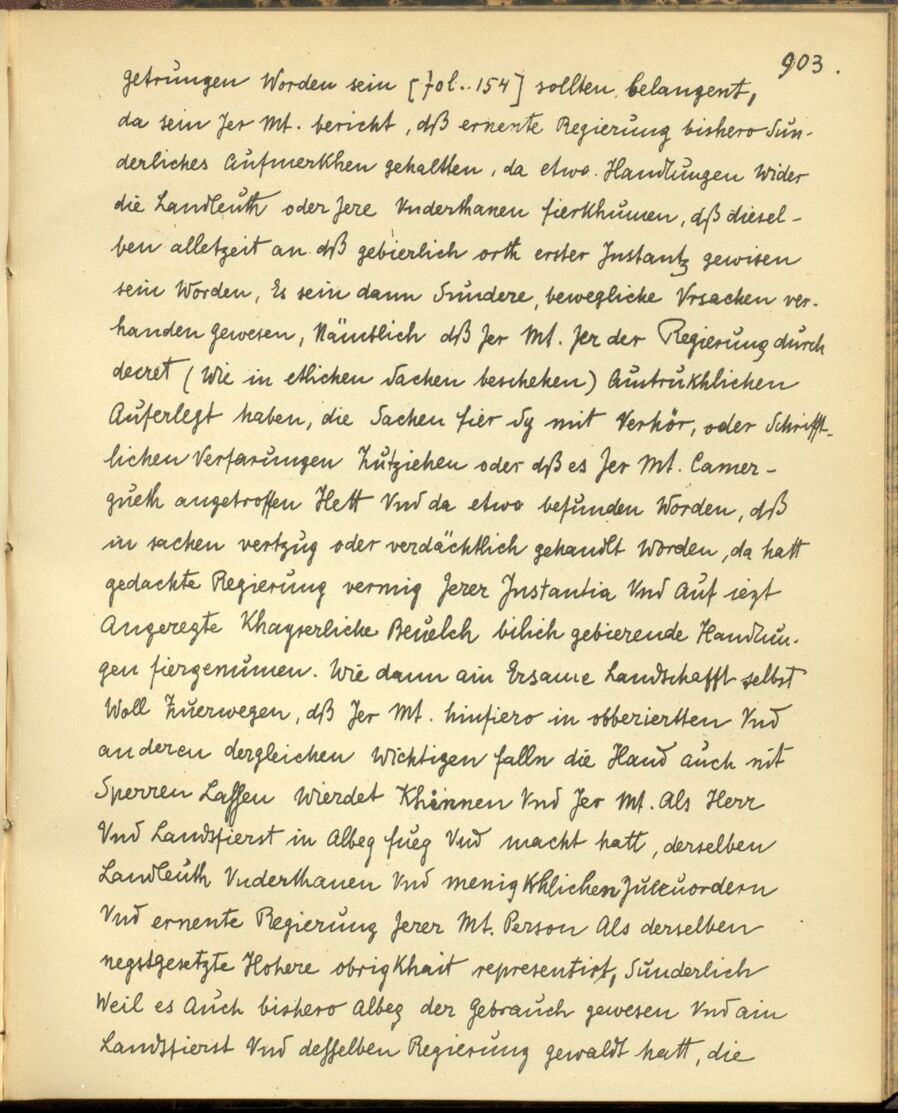 903.
getrungen Worden sein [fol. 154] sollten belangent,
da sein Jer Mt. bericht, dß ernente Regierung bishero Sun-
derliches Aufmerkhen gehaltten, da etwo. Handlungen Wider
die Landleuth oder Jere Vnderthanen fierkhumen, dß diesel-
ben alletzeit an dß gebierlich orth erster Instantz gewisen
sein Worden, Es sein dann Sundere, bewegliche Vrsachen ver-
handen gewesen, Nämblich dß Jer Mt. Jer der Regierung durch
decret (Wie in etlichen Sachen beschehen) Austrukhlichen
Auferlegt haben, die Sachen fier Sy mit Verhör, oder Schrifft-
lichen Verfarungen Zutziehen oder dß es Jer Mt. Camer-
gueth angetroffen Hett Vnd da etwo befunden Worden, dß
in sachen vertzug oder verdächtlich gehandlt Worden, da hatt
gedachte Regierung vermig Jerer Instantia Vnd Auf iezt
Angeregte Khayserliche Beuelch bilich gebierende Handlun-
gen fiergenumen. Wie dann ain Ersame Landschafft selbst
Woll Zuerwegen, dß Jer Mt. hinfiero in obberiertten Vnd
anderen dergleichen Wichtigen falln die Hand auch nit
Sperren Lassen Wierdet Khinnen Vnd Jer Mt. Als Herr
Vnd Landsfierst in Albeg fueg Vnd macht hatt, derselben
Landleuth Vnderthanen Vnd menigkhlichen
Vnd ernente Regierung Jerer Mt. Person Als derselben
negstgesetzte Hohere obrigkhait representirt, Sunderlich
Weil es Auch bishero Albeg der Gebrauch gewesen Vnd ain
Landsfierst Vnd desselben Regierung gewaldt hatt, die